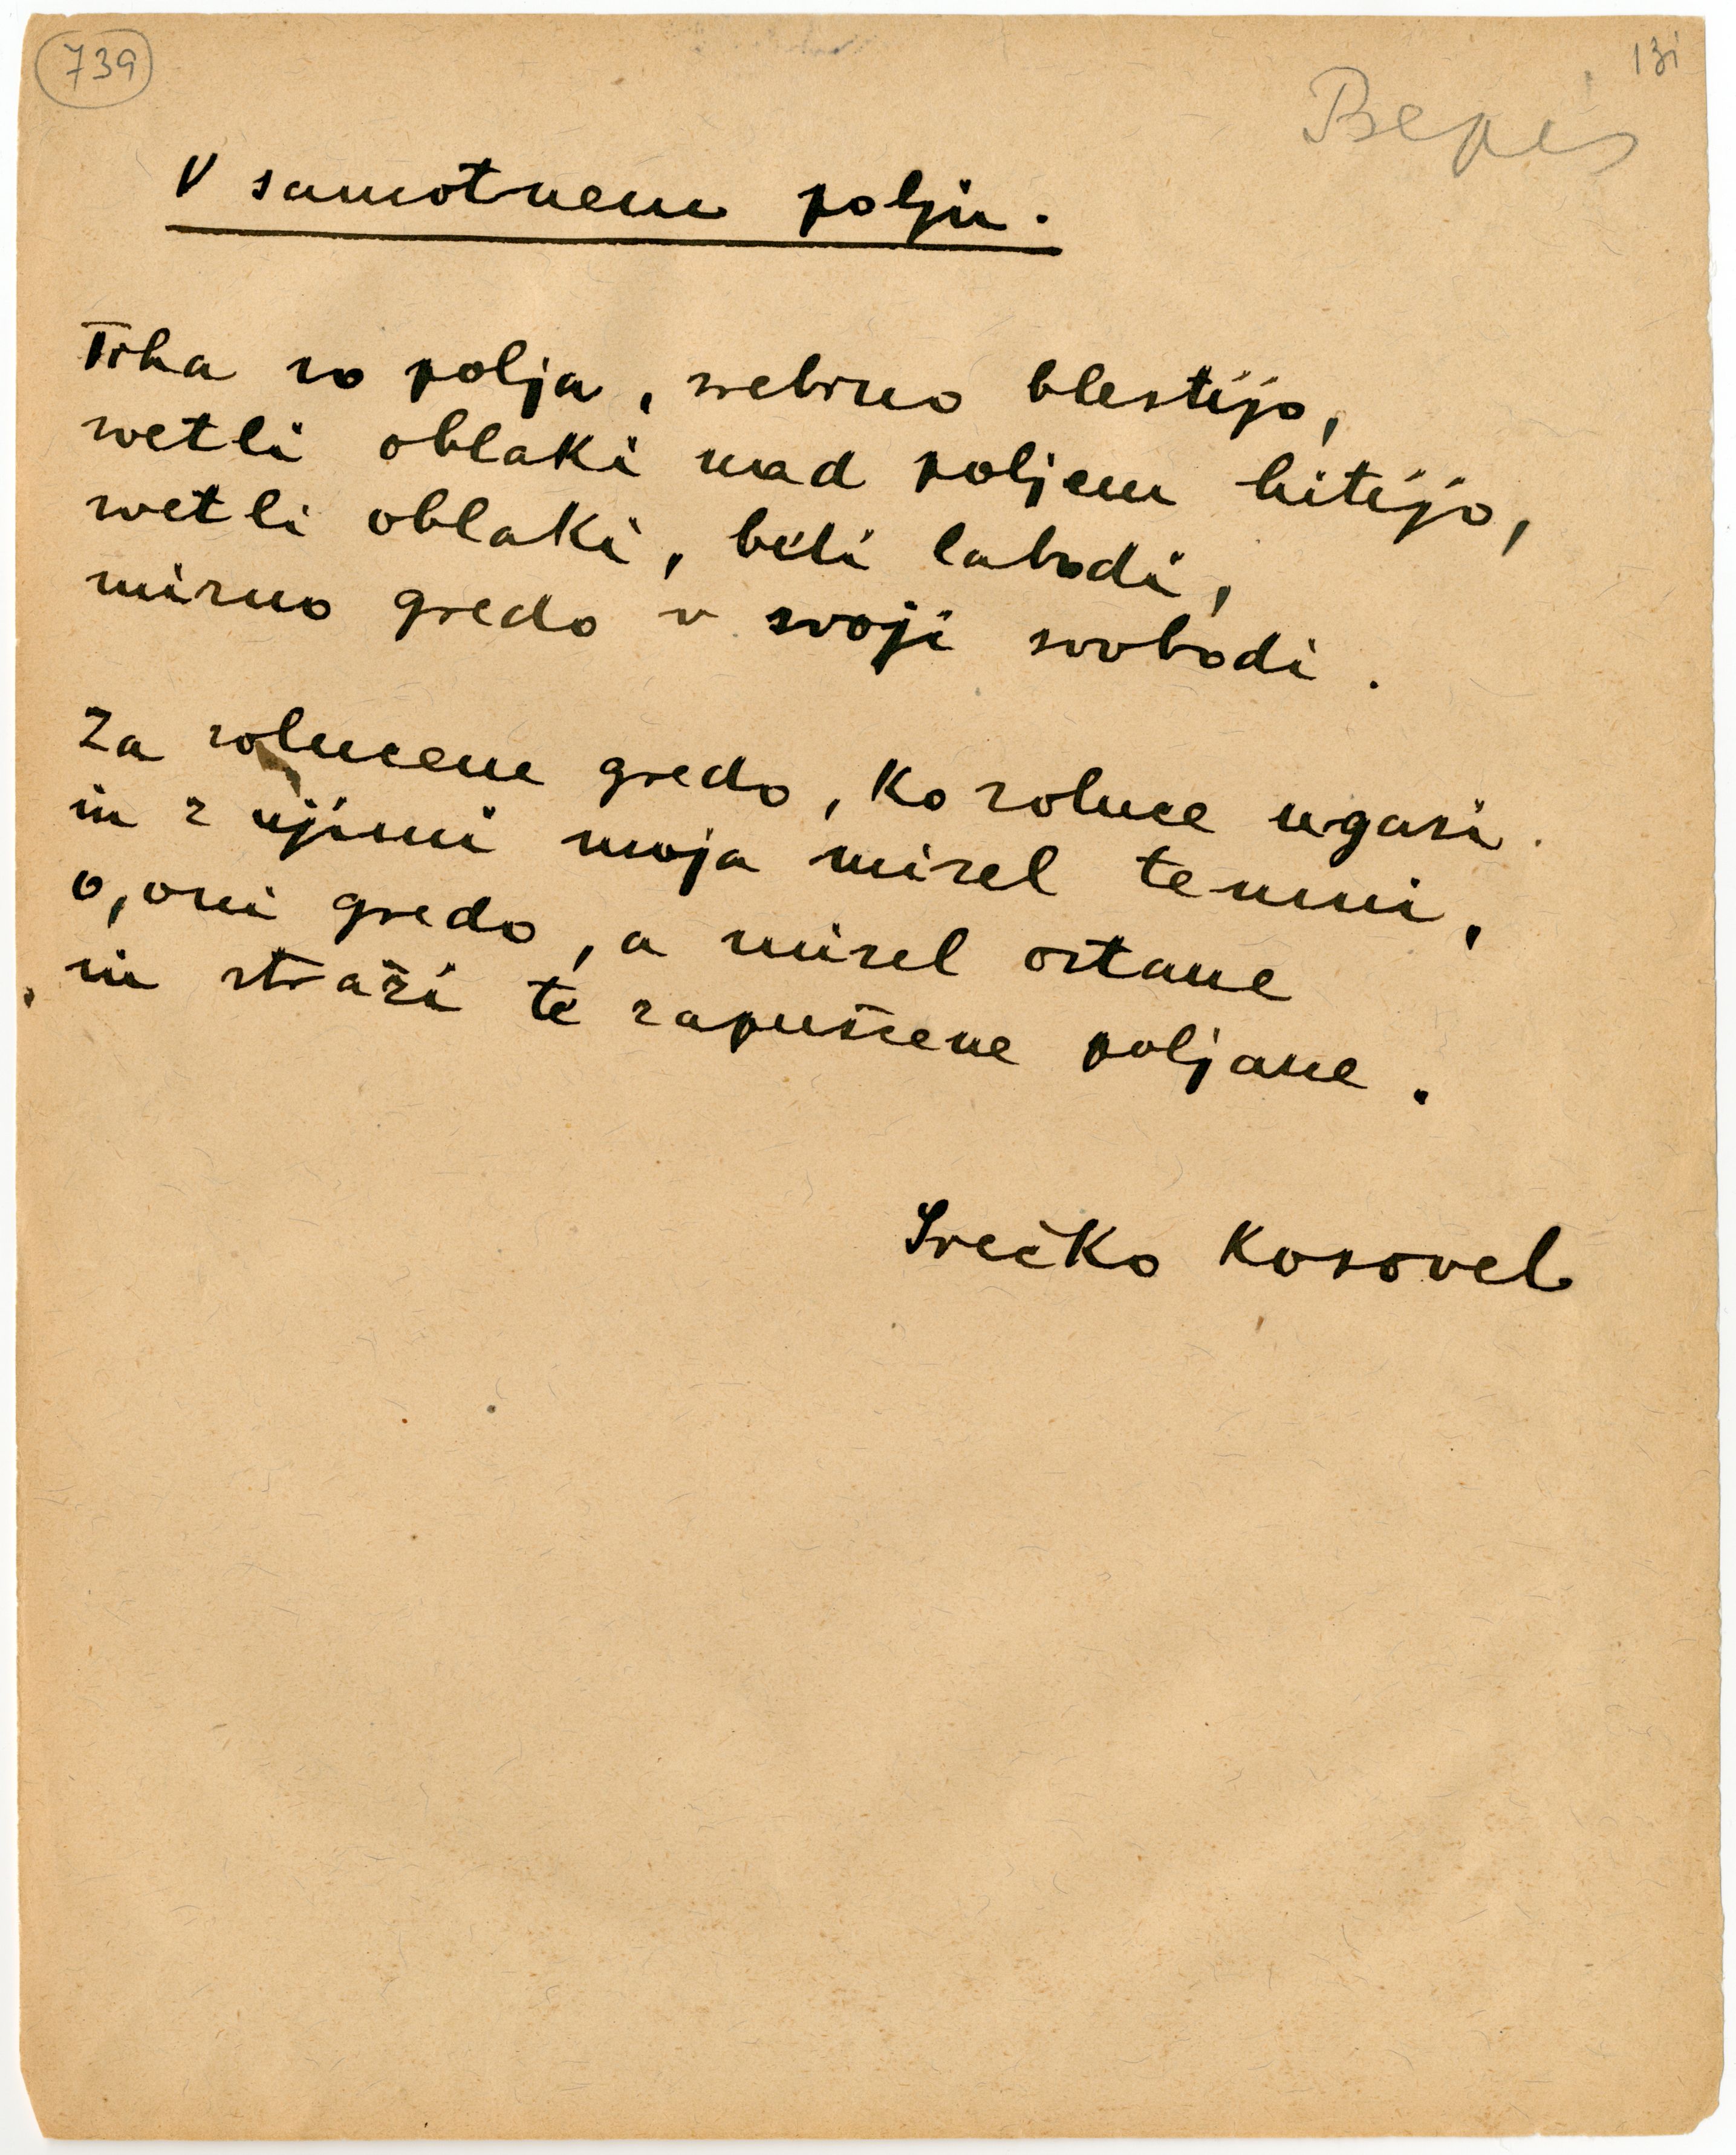 739
131
V samotnem polju.
Tiha so polja, srebrno blestijo,
svetli oblaki nad poljem hitijo,
svetli oblaki, beli labodi,
mirno gredo v svoji svobodi.
Za solncem gredo, ko solnce ugasi.
in z njimi moja misel temni,
o, oni gredo, a misel ostane
in straži te zapuščene poljane.
Srečko Kosovel